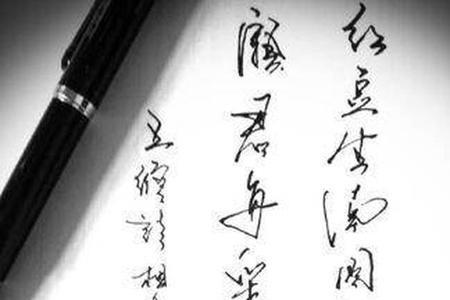 红豆生南国
願君多采
王维诗相